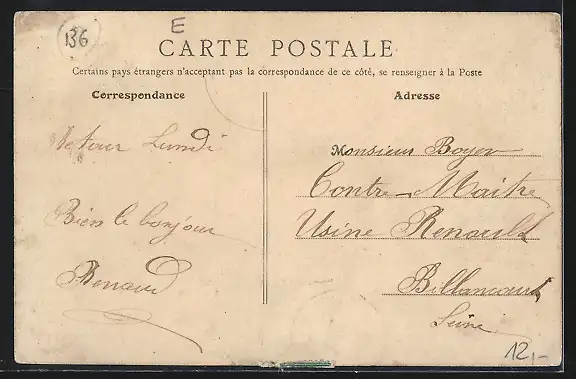 136
E
CARTE POSTALE
Certains pays étrangers n'acceptant pas la correspondance de ce côté, se renseigner à la Poste
Correspondance
Adresse
Retour Lundi
Bien le bonjour
Renaud
Monsieur Boyer
Contre-Maitre
Usine Renault
Billancourt
Seine
12,-